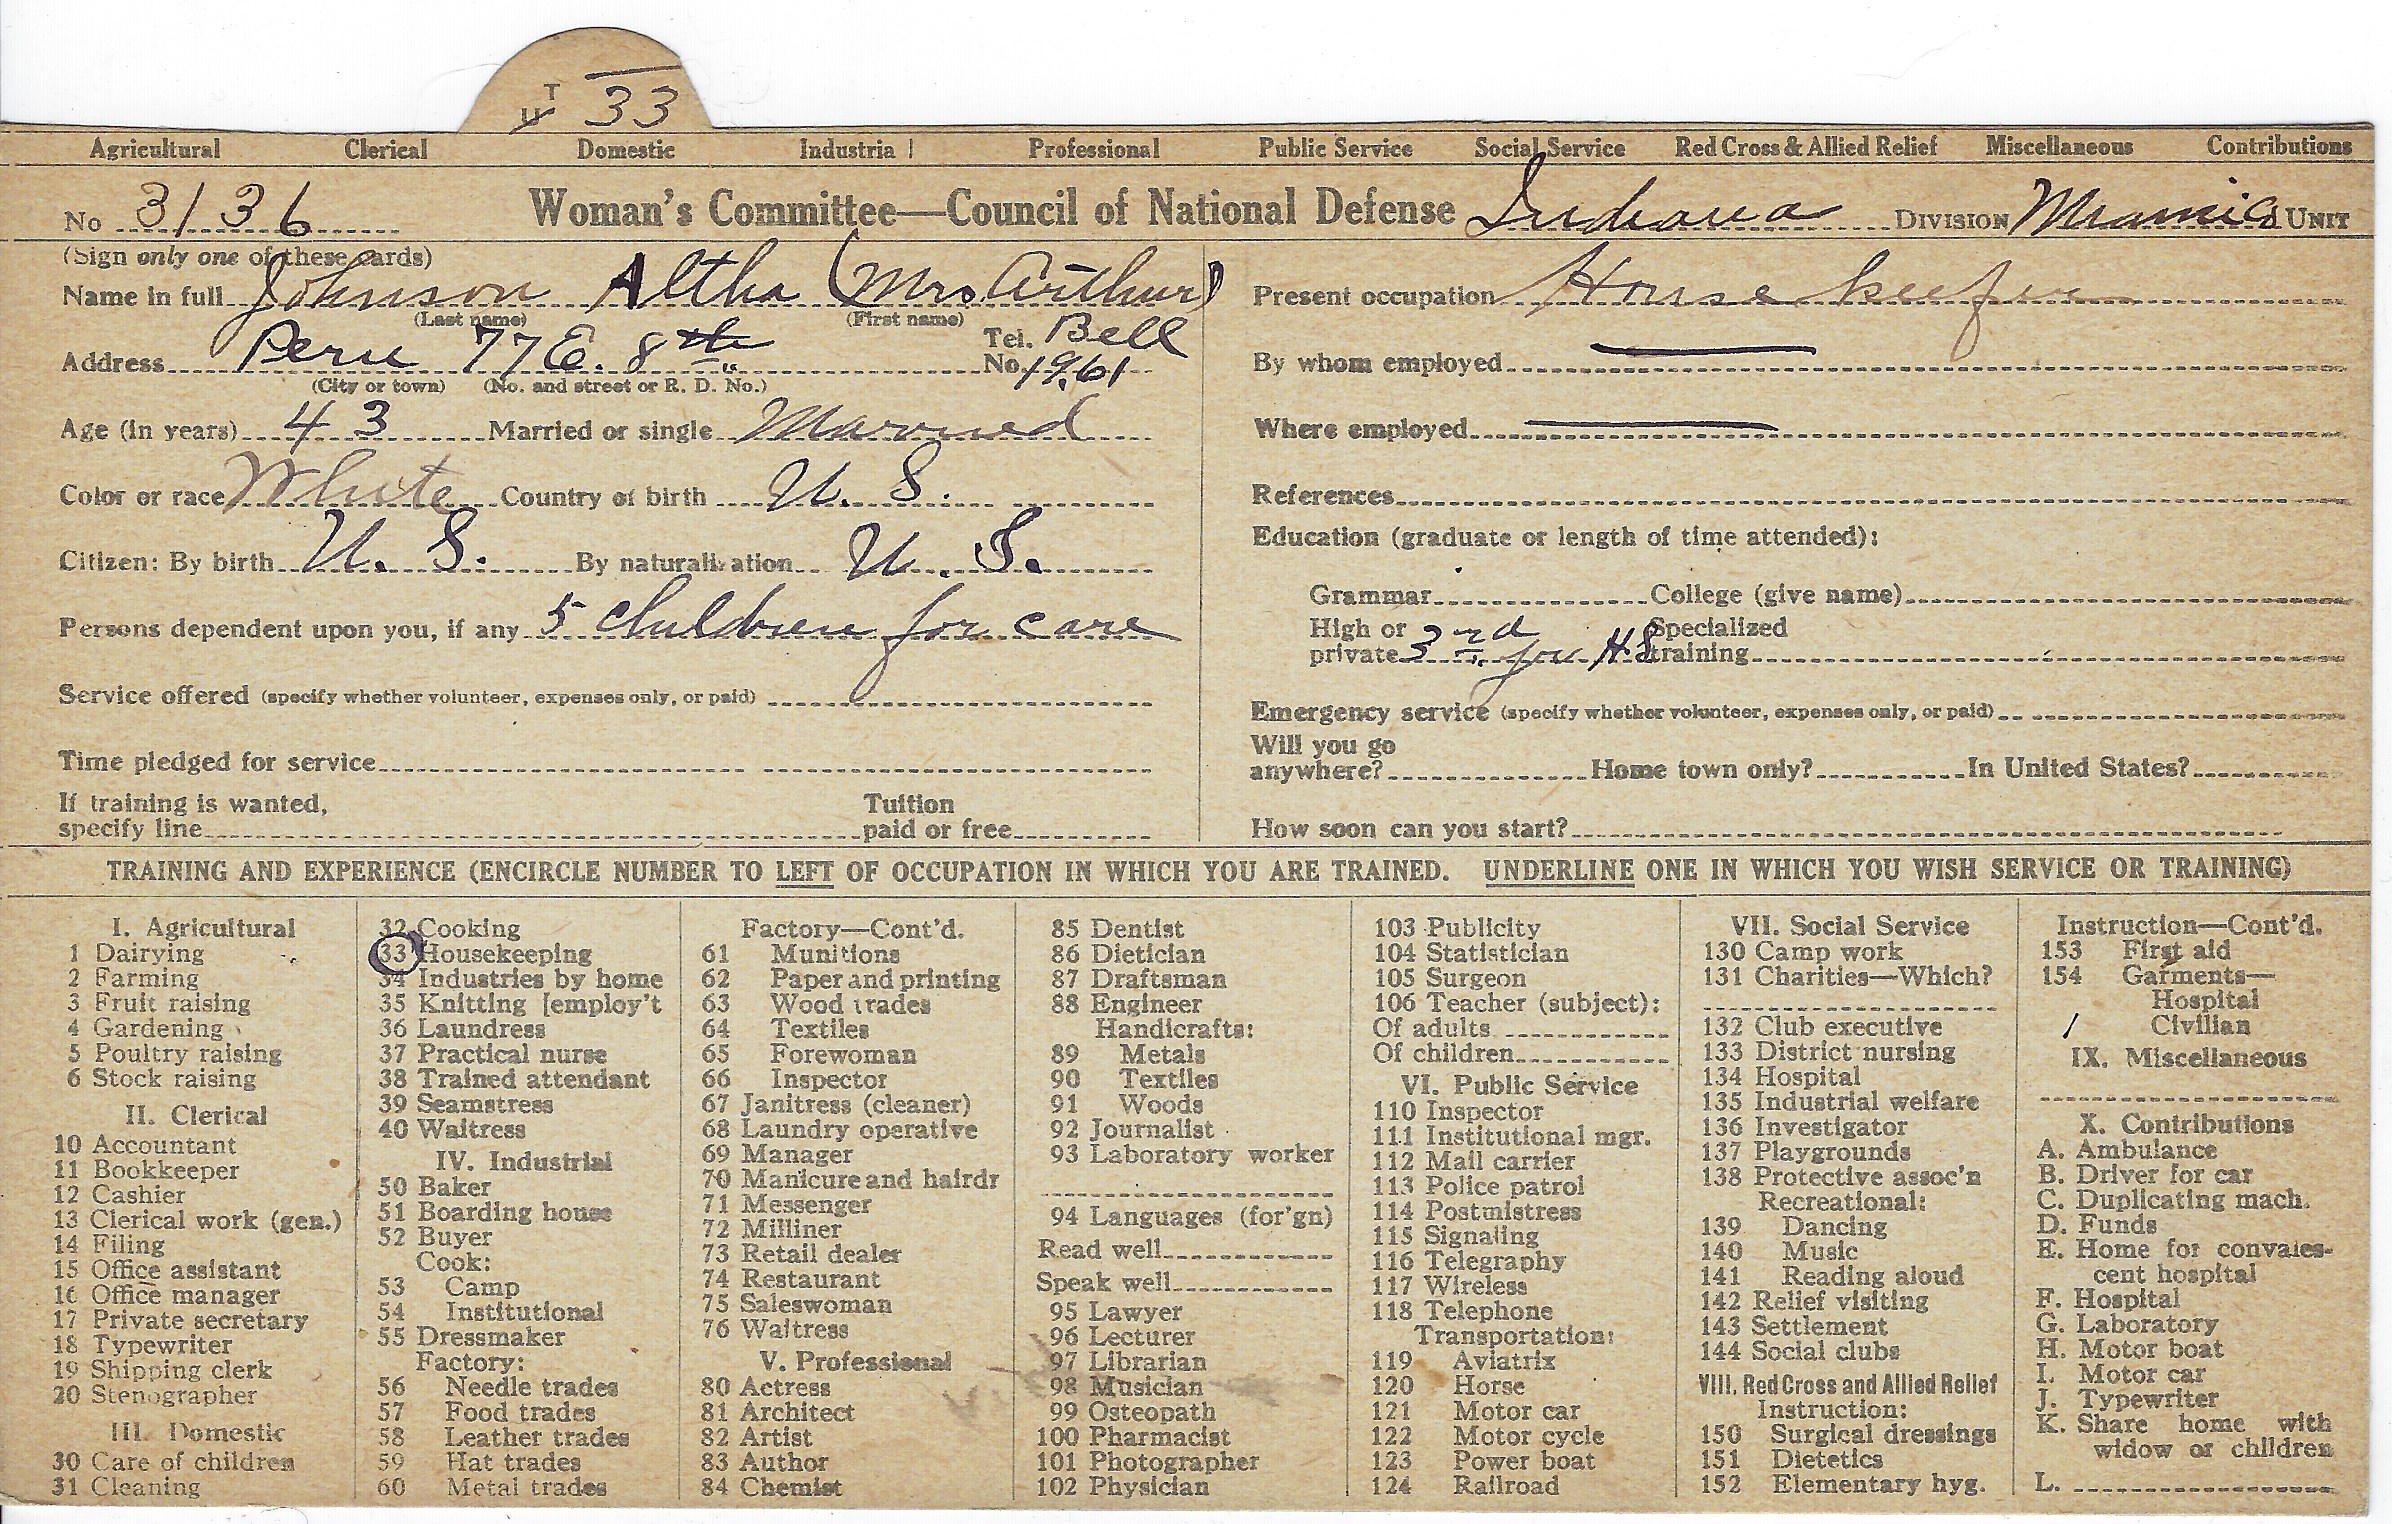 T
U 33
Agricultural Clerical Domestic Industrial Professional Public Service Social Service Red Cross & Allied Relief Miscellaneous Contributions
No 3136 Woman's Committee—Council of National Defense Indiana DIVISION Miami Co UNIT
(Sign only one of these cards)
Name in full Johnson Altha (Mrs Arthur)
(Last name) (First name)
Address Peru 77 E. 8th Tel. No. Bell 1961
(City or town) (No. and street or R. D. No.)
Age (in years) 43 Married or single Married
Color or race White Country of birth U. S.
Citizen: By birth U. S. By naturalization U. S.
Persons dependent upon you, if any 5 children for care
Service offered (specify whether volunteer, expenses only, or paid)
Time pledged for service
If training is wanted,
specify line Tuition paid or free
Present occupation House keeper
By whom employed
Where employed
References
Education (graduate or length of time attended):
Grammar College (give name)
High or private 3rd H.S. Specialized training
Emergency service (specify whether volunteer, expenses only, or paid)
Will you go
anywhere? Home town only? In United States?
How soon can you start?
TRAINING AND EXPERIENCE (ENCIRCLE NUMBER TO LEFT OF OCCUPATION IN WHICH YOU ARE TRAINED. UNDERLINE ONE IN WHICH YOU WISH SERVICE OR TRAINING)
I. Agricultural
1 Dairying
2 Farming
3 Fruit raising
4 Gardening
5 Poultry raising
6 Stock raising
II. Clerical
10 Accountant
11 Bookkeeper
12 Cashier
13 Clerical work (gen.)
14 Filing
15 Office assistant
16 Office manager
17 Private secretary
18 Typewriter
19 Shipping clerk
20 Stenographer
III. Domestic
30 Care of children
31 Cleaning
32 Cooking
33 Housekeeping
34 Industries by home
35 Knitting [employ't
36 Laundress
37 Practical nurse
38 Trained attendant
39 Seamstress
40 Waitress
IV. Industrial
50 Baker
51 Boarding house
52 Buyer
Cook:
53 Camp
54 Institutional
55 Dressmaker
Factory:
56 Needle trades
57 Food trades
58 Leather trades
59 Hat trades
60 Metal trades
Factory—Cont'd.
61 Munitions
62 Paper and printing
63 Wood trades
64 Textiles
65 Forewoman
66 Inspector
67 Janitress (cleaner)
68 Laundry operative
69 Manager
70 Manicure and hairdr
71 Messenger
72 Milliner
73 Retail dealer
74 Restaurant
75 Saleswoman
76 Waitress
V. Professional
80 Actress
81 Architect
82 Artist
83 Author
84 Chemist
85 Dentist
86 Dietician
87 Draftsman
88 Engineer
Handicrafts:
89 Metals
90 Textiles
91 Woods
92 Journalist
93 Laboratory worker
94 Languages (for'gn)
Read well
Speak well
95 Lawyer
96 Lecturer
97 Librarian
98 Musician
99 Osteopath
100 Pharmacist
101 Photographer
102 Physician
103 Publicity
104 Statistician
105 Surgeon
106 Teacher (subject):
Of adults
Of children
VI. Public Service
110 Inspector
111 Institutional mgr.
112 Mail carrier
113 Police patrol
114 Postmistress
115 Signaling
116 Telegraphy
117 Wireless
118 Telephone
Transportation:
119 Aviatrix
120 Horse
121 Motor car
122 Motor cycle
123 Power boat
124 Railroad
VII. Social Service
130 Camp work
131 Charities—Which?
132 Club executive
133 District nursing
134 Hospital
135 Industrial welfare
136 Investigator
137 Playgrounds
138 Protective assoc'n
Recreational:
139 Dancing
140 Music
141 Reading aloud
142 Relief visiting
143 Settlement
144 Social clubs
VIII. Red Cross and Allied Relief
Instruction:
150 Surgical dressings
151 Dietetics
152 Elementary hyg.
Instruction—Cont'd.
153 First aid
154 Garments—
Hospital
Civilian
IX. Miscellaneous
X. Contributions
A. Ambulance
B. Driver for car
C. Duplicating mach.
D. Funds
E. Home for convales-
cent hospital
F. Hospital
G. Laboratory
H. Motor boat
I. Motor car
J. Typewriter
K. Share home with
widow or children
L.